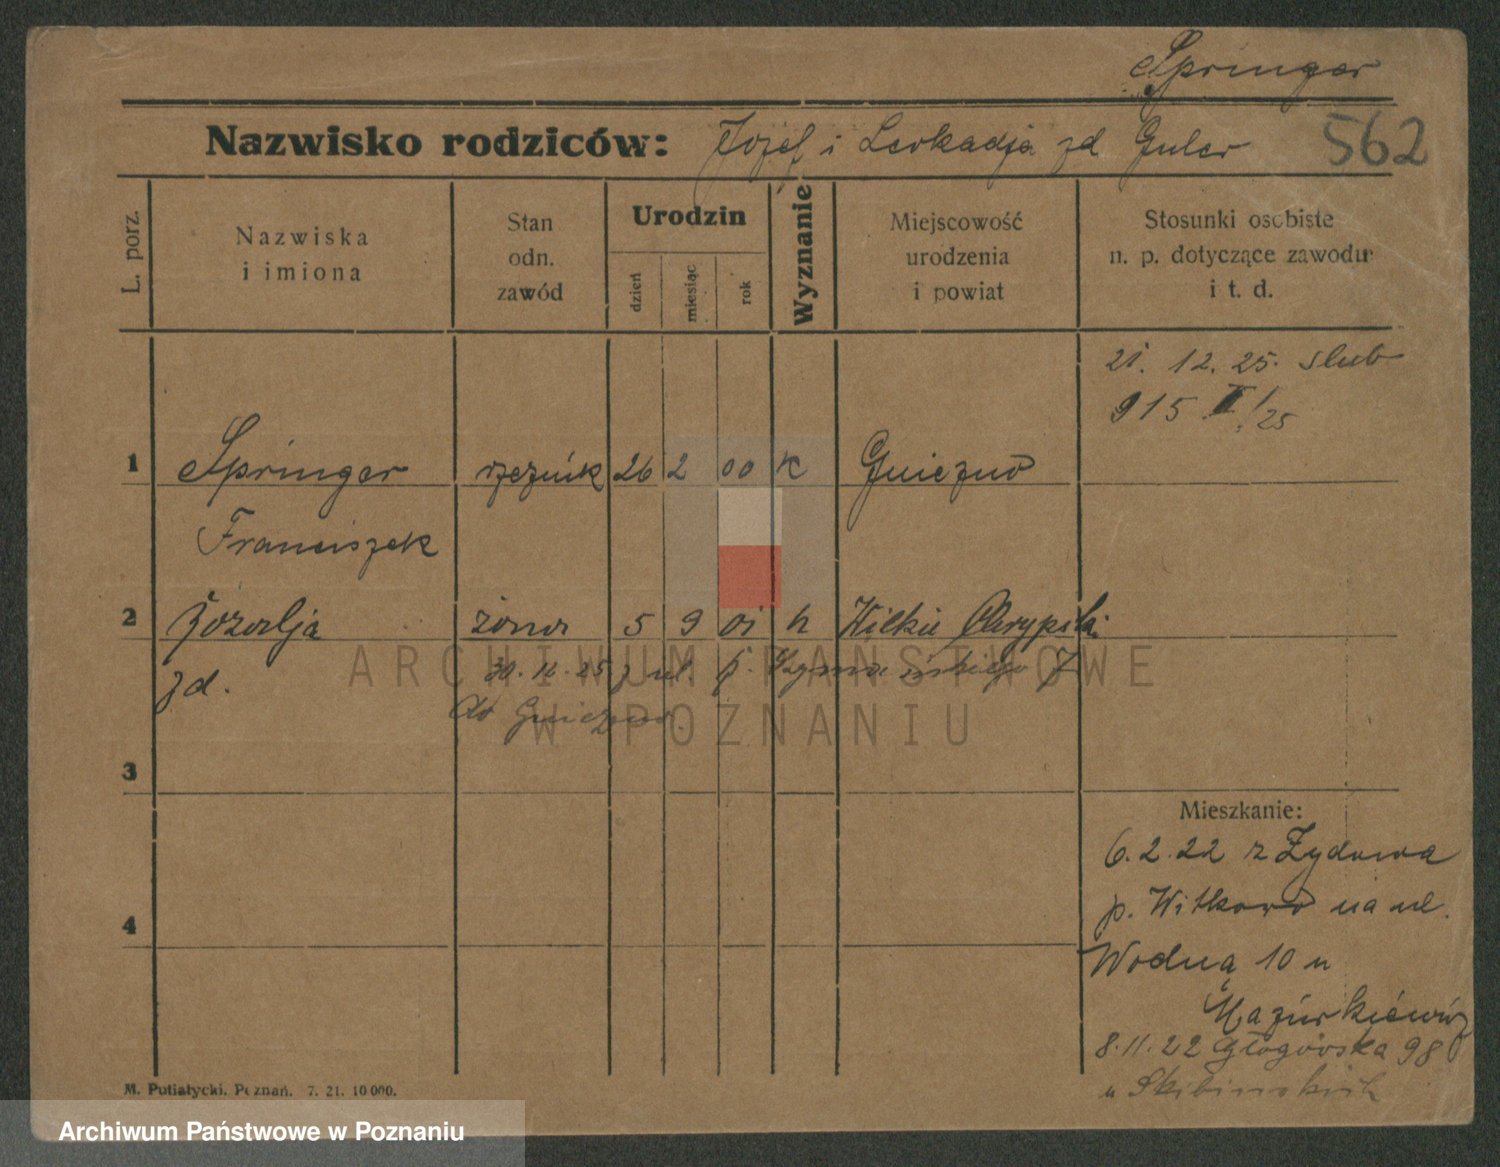 Springer
Nazwisko rodziców: Józef i Leokadja zd Guler 562
L. porz.
Nazwiska
i imiona
Stan
odn.
zawód
Urodzin
dzień
miesiąc
rok
Wyznanie
Miejscowość
urodzenia
i powiat
Stosunki osobiste
n. p. dotyczące zawodu
i t. d.
21. 12. 25. slub
915 II/25
1 Springer rzeźnik 26 2 00 k Gniezno
Franciszek
2 żona 5 9 01 k
zd. 30. 25 z ul.
do Gniezna
ARCHIWUM PAŃSTWOWE
W POZNANIU
3
Mieszkanie:
6. 2. 22 z Żydowa
p. Witkowo na ul.
4
Wodna 10 u
Mazurkiewicz
8. 11. 22 Głogowska 98
u Skibińskich
M. Putiatycki, Poznań. 7. 21. 10 000.
Archiwum Państwowe w Poznaniu